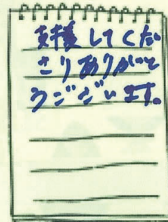 支援してくだ
さりありがと
うございます。